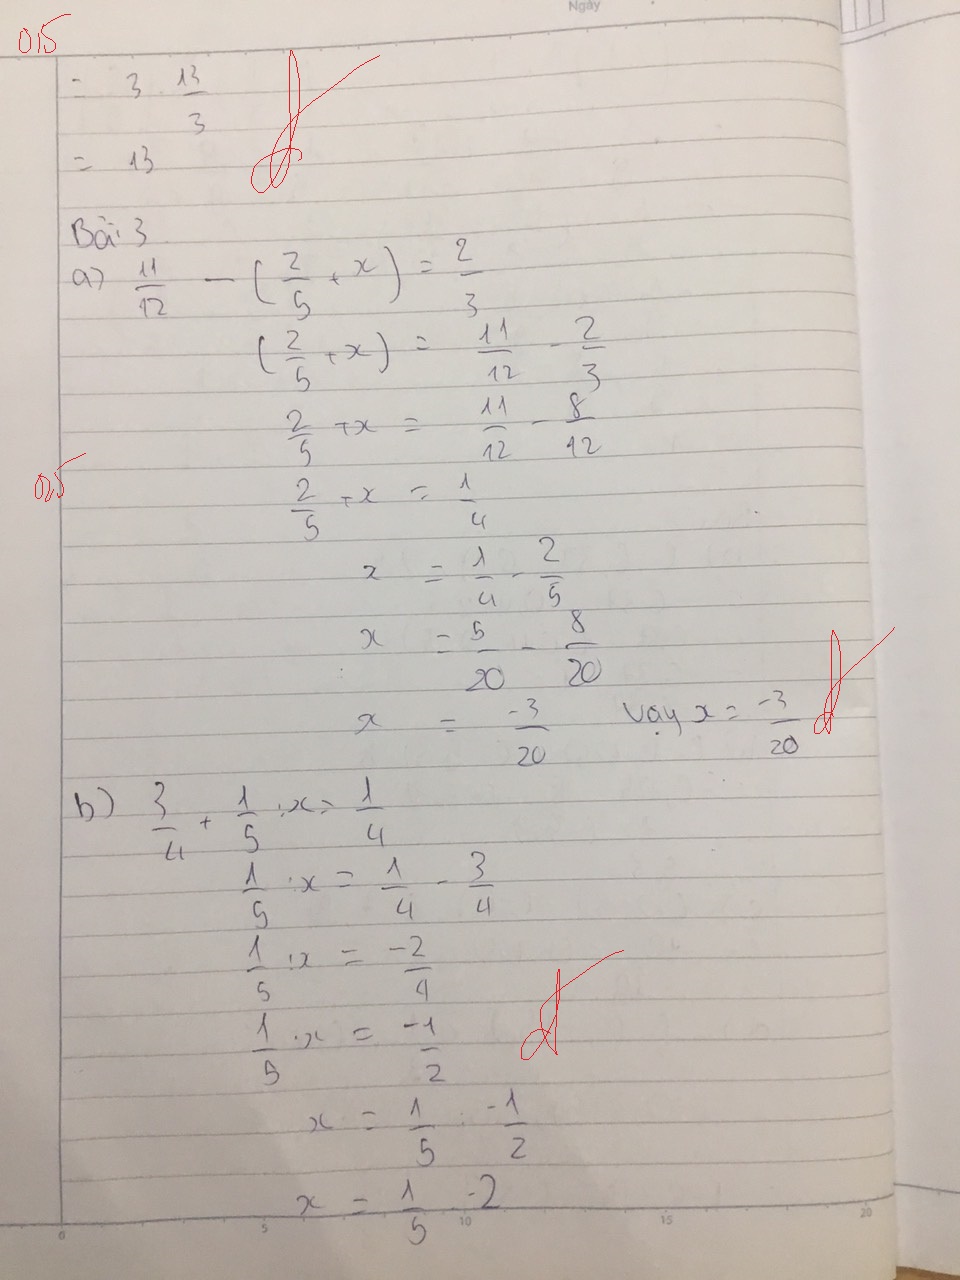 Ngày
0,5
= 3 . 13/3
= 13
Bài 3
a) 11/12 - (2/5 + x) = 2/3
(2/5 + x) = 11/12 - 2/3
2/5 + x = 11/12 - 8/12
0,5
2/5 + x = 1/4
x = 1/4 - 2/5
x = 5/20 - 8/20
x = -3/20 Vậy x = -3/20
b) 3/4 + 1/5 . x = 1/4
1/5 . x = 1/4 - 3/4
1/5 . x = -2/4
1/5 . x = -1/2
x = 1/5 : -1/2
x = 1/5 . -2
0 5 10 15 20